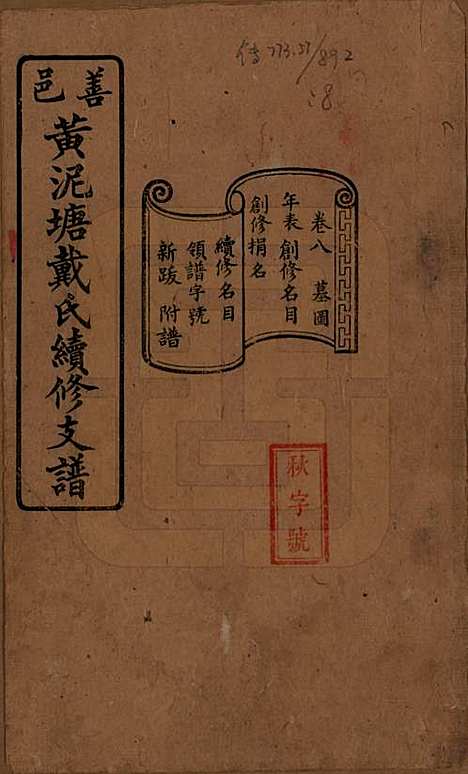 傳 773.57/892
善邑
黃泥塘戴氏續修支譜
卷八 墓圖
年表 創修名目
創修捐名
續修名目
領譜字號
新跋 附譜
秋字號